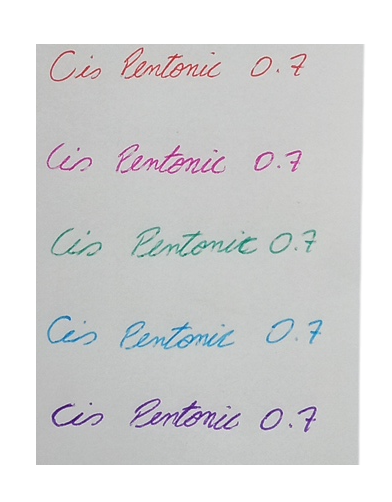 Cis Pentonic 0.7
Cis Pentonic 0.7
Cis Pentonic 0.7
Cis Pentonic 0.7
Cis Pentonic 0.7